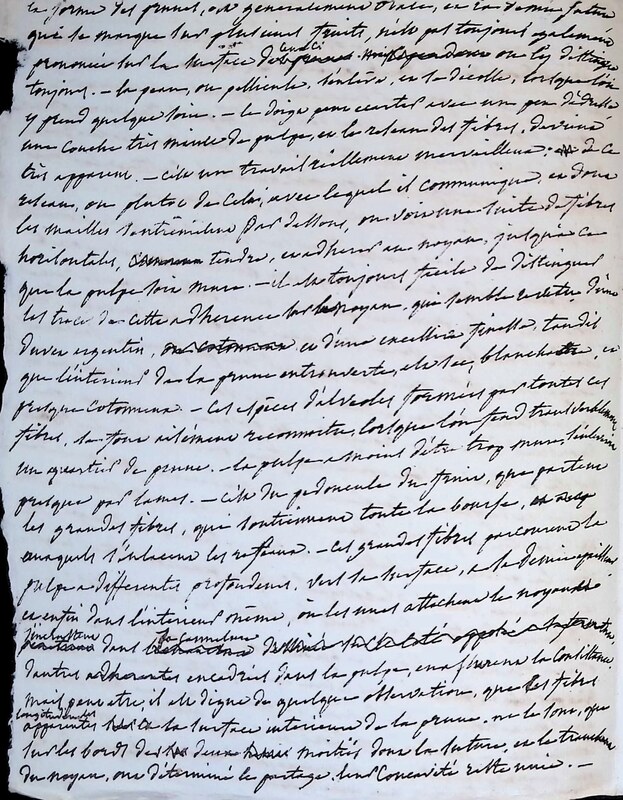 la forme des prunes, est generalement ovale, et la demie suture
que se marque sur plusieurs fruits, n'est pas toujours egalement
prononcée sur la surface de ceux ci on l'y distingue
toujours. — la peau, ou pellicule, s'enleve, et se décolle, lorsque l'on
y prend quelque soin. — le doigt peut ecarter avec un peu d'adresse
une couche très mince de pulpe, et le reseau des fibres, devient
très apparent. — c'est un travail réellement merveilleux. de ce
reseau, ou plutot de celui, avec lequel il communique, et dont
les mailles s'entremelent par dessous, on voit une suite de fibres
horisontales, tendre, et adherer au noyau, jusqu'a ce
que la pulpe soit mure. — il est toujours facile de distinguer
les traces de cette adherence sur le noyau, qui semble revetu d'un
duvet argentin, et d'une excellente finesse, tandis
que l'interieur de la prune entrouverte, est sec, blanchatre, et
presque cotoneux. — Ces especes d'alveoles formées par toutes ces
fibres, se font aisément reconnoitre, lorsque l'on fend transversalement
un quartier de prune. — la pulpe a moins d'etre trop mure, s'enleve
presque par lames. — c'est du pedoncule du fruit, que partent
les grandes fibres, qui soutiennent toute la bourse, et
auxquels s'enlacent les reseaux. — Ces grandes fibres parcourent la
pulpe a differentes profondeurs, vers la surface, a la demie epaisseur
et enfin dans l'interieur même, où les unes attachent le noyau
dans la cannelure
d'autres encadrées dans la pulpe, en assurent la consistance.
mais peut etre, il est digne de quelque observation, que les fibres
longitudinales
apparentes a la surface interieure de la prune, ne le sont, que
sur les bords des deux moitiés dont la suture, et le tranchant
du noyau, ont déterminé le partage. leur concavité reste unie. —